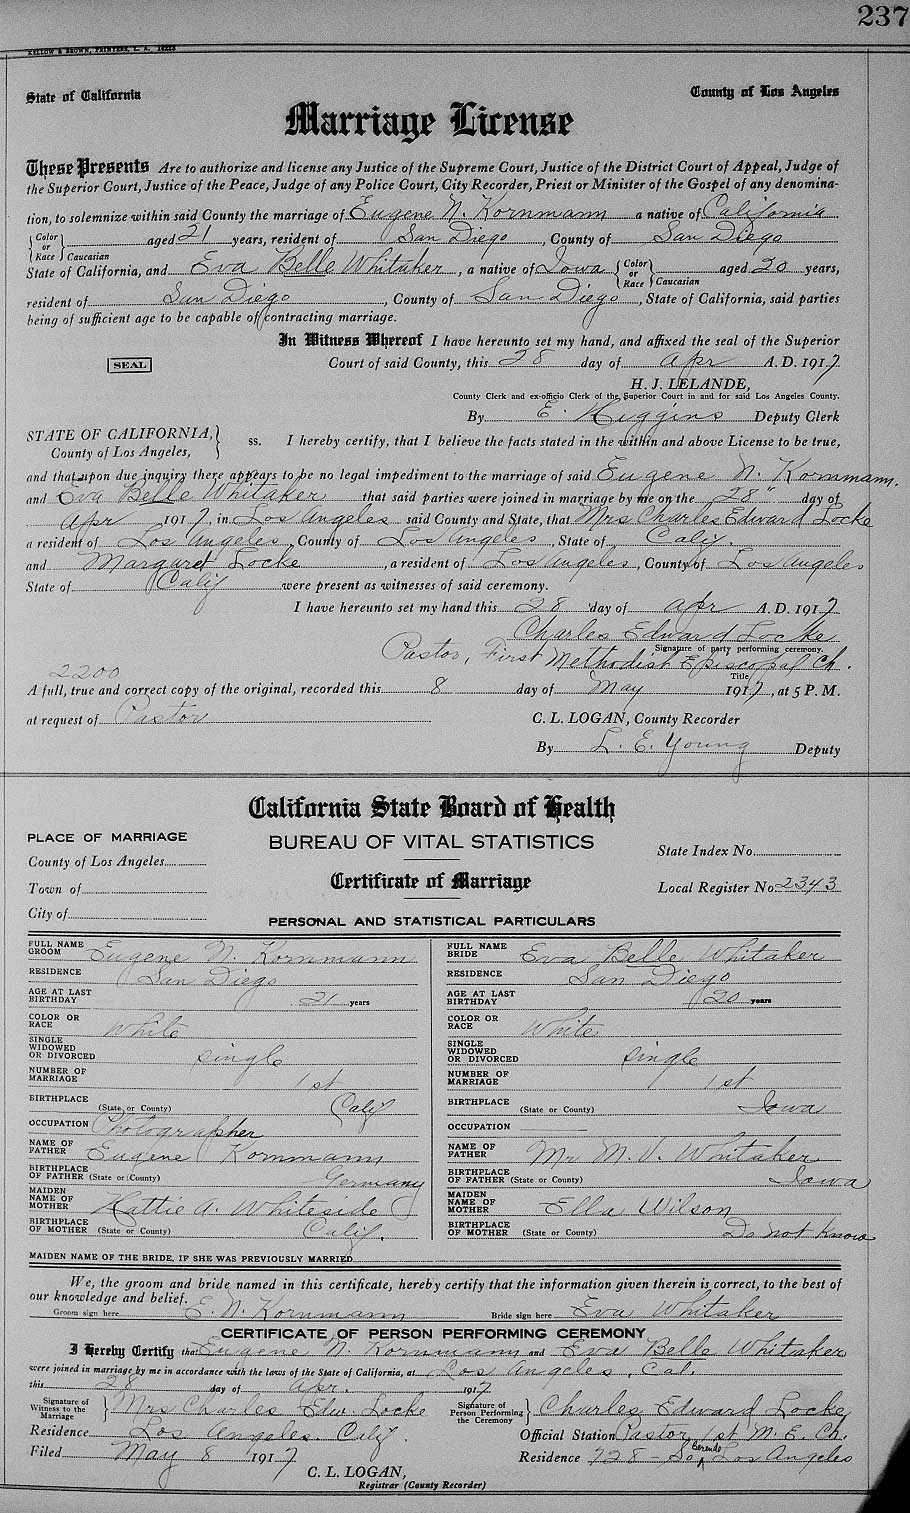 237
KELLOW & BROWN, PRINTERS, L. A.
State of California County of Los Angeles
Marriage License
These Presents Are to authorize and license any Justice of the Supreme Court, Justice of the District Court of Appeal, Judge of
the Superior Court, Justice of the Peace, Judge of any Police Court, City Recorder, Priest or Minister of the Gospel of any denomina-
tion, to solemnize within said County the marriage of Eugene N. Kornmann a native of California
Color or Race Caucasian aged 21 years, resident of San Diego, County of San Diego
State of California, and Eva Belle Whitaker, a native of Iowa Color or Race Caucasian aged 20 years,
resident of San Diego, County of San Diego, State of California, said parties
being of sufficient age to be capable of contracting marriage.
In Witness Whereof I have hereunto set my hand, and affixed the seal of the Superior
SEAL Court of said County, this 28 day of Apr A. D. 1917.
H. J. LELANDE,
County Clerk and ex-officio Clerk of the Superior Court in and for said Los Angeles County.
By E. Higgins Deputy Clerk
STATE OF CALIFORNIA,
County of Los Angeles, ss. I hereby certify, that I believe the facts stated in the within and above License to be true,
and that upon due inquiry there appears to be no legal impediment to the marriage of said Eugene N. Kornmann.
and Eva Belle Whitaker that said parties were joined in marriage by me on the 28" day of
Apr 1917, in Los Angeles said County and State, that Mrs Charles Edward Locke
a resident of Los Angeles, County of Los Angeles, State of Calif.
and Margaret Locke, a resident of Los Angeles, County of Los Angeles
State of Calif were present as witnesses of said ceremony.
I have hereunto set my hand this 28 day of Apr A. D. 1917
Charles Edward Locke
Signature of party performing ceremony.
Pastor, First Methodist Episcopal Ch.
Title
2200
A full, true and correct copy of the original, recorded this 8 day of May 1917, at 5 P. M.
at request of Pastor C. L. LOGAN, County Recorder
By L. E. Young Deputy
California State Board of Health
PLACE OF MARRIAGE BUREAU OF VITAL STATISTICS
County of Los Angeles State Index No.
Town of Certificate of Marriage Local Register No. 2343
City of
PERSONAL AND STATISTICAL PARTICULARS
FULL NAME GROOM Eugene N. Kornmann FULL NAME BRIDE Eva Belle Whitaker
RESIDENCE San Diego RESIDENCE San Diego
AGE AT LAST BIRTHDAY 21 years AGE AT LAST BIRTHDAY 20 years
COLOR OR RACE White COLOR OR RACE White
SINGLE WIDOWED OR DIVORCED single SINGLE WIDOWED OR DIVORCED single
NUMBER OF MARRIAGE 1st NUMBER OF MARRIAGE 1st
BIRTHPLACE (State or County) Calif BIRTHPLACE (State or County) Iowa
OCCUPATION Photographer OCCUPATION
NAME OF FATHER Eugene Kornmann NAME OF FATHER Mr M. V. Whitaker
BIRTHPLACE OF FATHER (State or County) Germany BIRTHPLACE OF FATHER (State or County) Iowa
MAIDEN NAME OF MOTHER Hattie A. Whiteside MAIDEN NAME OF MOTHER Ella Wilson
BIRTHPLACE OF MOTHER (State or County) Calif. BIRTHPLACE OF MOTHER (State or County) Do not know
MAIDEN NAME OF THE BRIDE, IF SHE WAS PREVIOUSLY MARRIED
We, the groom and bride named in this certificate, hereby certify that the information given therein is correct, to the best of
our knowledge and belief.
Groom sign here E. N. Kornmann Bride sign here Eva Whitaker
CERTIFICATE OF PERSON PERFORMING CEREMONY
I Hereby Certify that Eugene N. Kornmann and Eva Belle Whitaker
were joined in marriage by me in accordance with the laws of the State of California, at Los Angeles, Cal.
this 28 day of Apr. 1917
Signature of Witness to the Marriage Mrs Charles Edw. Locke Signature of Person Performing the Ceremony Charles Edward Locke
Residence Los Angeles. Calif. Official Station Pastor 1st M. E. Ch.
Filed May 8 1917 Residence 728 - So Berendo Los Angeles
C. L. LOGAN,
Registrar (County Recorder)